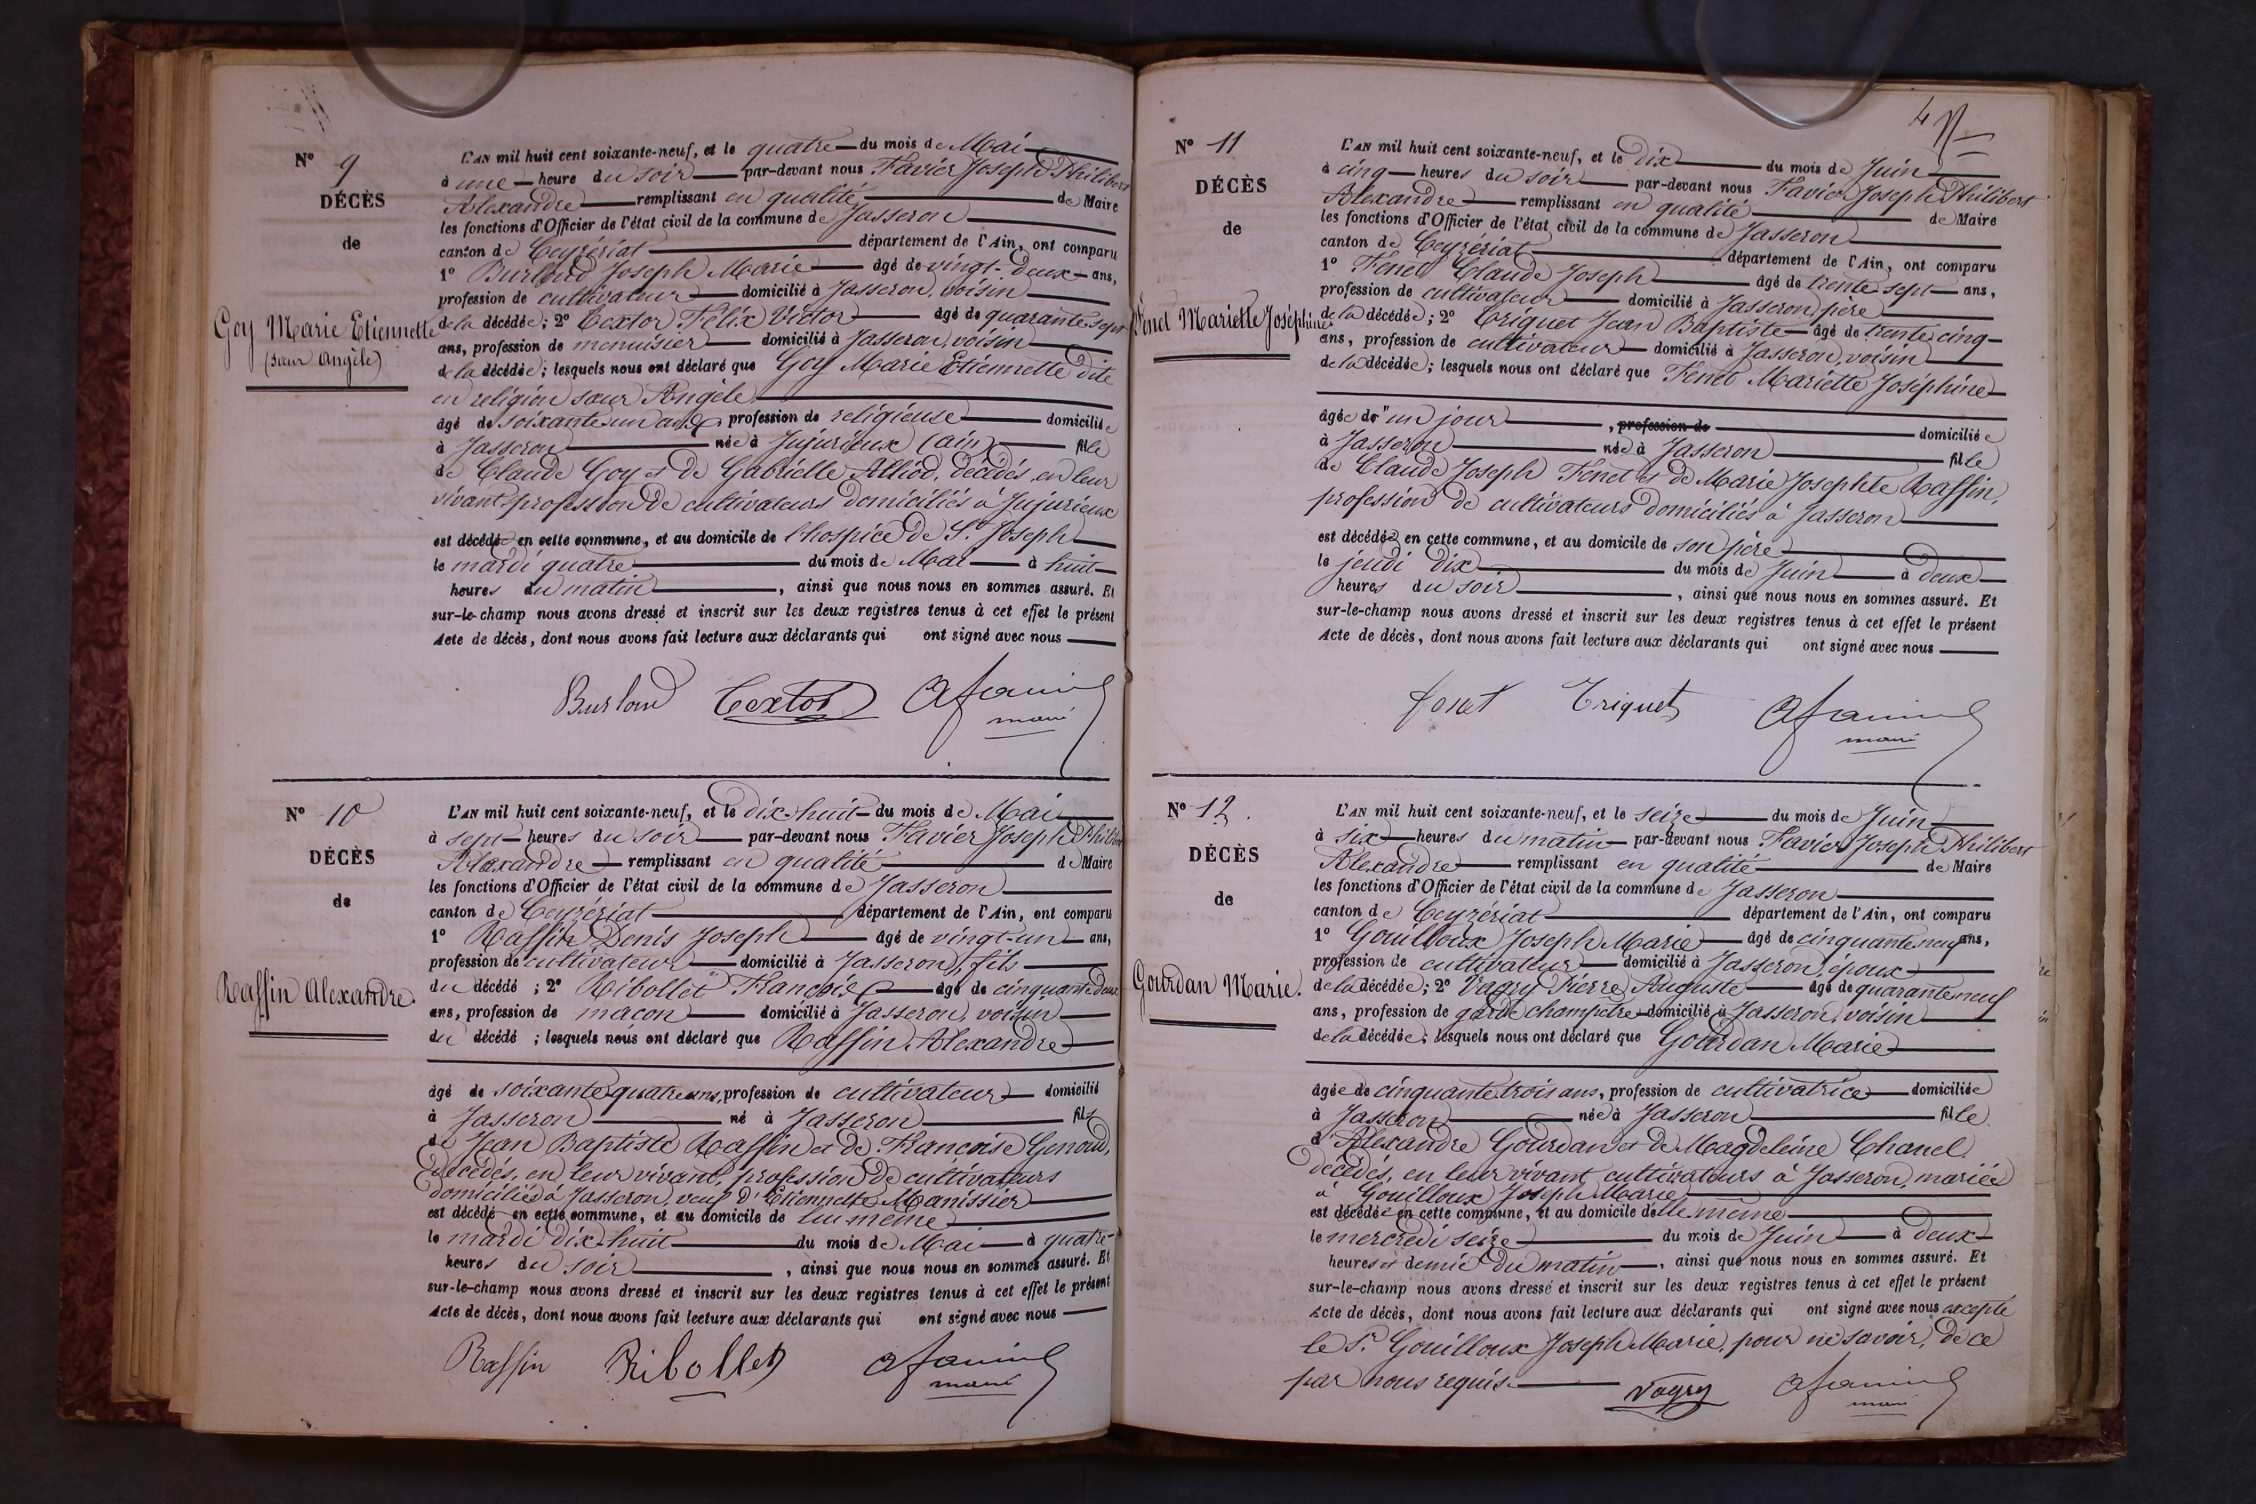 N° 9
DÉCÈS
de
Goy Marie Etiennette
(sœur Angèle)
L'AN mil huit cent soixante-neuf, et le quatre du mois de Mai
à une heure du soir par-devant nous Favier Joseph Philibert
Alexandre remplissant en qualité de Maire
les fonctions d'Officier de l'état civil de la commune de Jasseron
canton de Ceyzériat département de l'Ain, ont comparu
1° Burloud Joseph Marie âgé de vingt-deux ans,
profession de cultivateur domicilié à Jasseron, voisin
de la décédée; 2° Textor Félix Victor âgé de quarante sept
ans, profession de menuisier domicilié à Jasseron, voisin
de la décédée; lesquels nous ont déclaré que Goy Marie Etiennette dite
en religion sœur Angèle
âgé de soixante un ans, profession de religieuse domiciliée
à Jasseron née à Jujurieux (ain) fille
de Claude Goy et de Gabrielle Alliod, décédés en leur
vivant profession de cultivateurs domiciliés à Jujurieux
est décédée en cette commune, et au domicile de l'hospice de St Joseph
le mardi quatre du mois de Mai à huit
heures du matin, ainsi que nous nous en sommes assuré. Et
sur-le-champ nous avons dressé et inscrit sur les deux registres tenus à cet effet le présent
Acte de décès, dont nous avons fait lecture aux déclarants qui ont signé avec nous
Burloud Textor
maire
N° 10
DÉCÈS
de
Raffin Alexandre.
L'AN mil huit cent soixante-neuf, et le dix-huit du mois de Mai
à sept heures du soir par-devant nous Favier Joseph Philibert
Alexandre remplissant en qualité de Maire
les fonctions d'Officier de l'état civil de la commune de Jasseron
canton de Ceyzériat département de l'Ain, ont comparu
1° Raffin Denis Joseph âgé de vingt-un ans,
profession de cultivateur domicilié à Jasseron, fils
du décédé; 2° Ribollet François âgé de cinquante deux
ans, profession de maçon domicilié à Jasseron, voisin
du décédé; lesquels nous ont déclaré que Raffin Alexandre
âgé de soixante quatre ans, profession de cultivateur domicilié
à Jasseron né à Jasseron fils
de Jean Baptiste Raffin et de Françoise Genoud,
décédés, en leur vivant, profession de cultivateurs
domiciliés à Jasseron, veuf d'Etiennette Manissier
est décédé en cette commune, et au domicile de lui même
le mardi dix-huit du mois de Mai à quatre
heures du soir, ainsi que nous nous en sommes assuré. Et
sur-le-champ nous avons dressé et inscrit sur les deux registres tenus à cet effet le présent
Acte de décès, dont nous avons fait lecture aux déclarants qui ont signé avec nous
Raffin Ribollet
maire
4
N° 11
DÉCÈS
de
Fenet Mariette Joséphine
L'AN mil huit cent soixante-neuf, et le dix du mois de Juin
à cinq heures du soir par-devant nous Favier Joseph Philibert
Alexandre remplissant en qualité de Maire
les fonctions d'Officier de l'état civil de la commune de Jasseron
canton de Ceyzériat département de l'Ain, ont comparu
1° Fenet Claude Joseph âgé de trente sept ans,
profession de cultivateur domicilié à Jasseron, père
de la décédée; 2° Triquet Jean Baptiste âgé de trente cinq
ans, profession de cultivateur domicilié à Jasseron, voisin
de la décédée; lesquels nous ont déclaré que Fenet Mariette Joséphine
âgée de un jour, profession de domiciliée
à Jasseron née à Jasseron fille
de Claude Joseph Fenet et de Marie Josephte Raffin,
profession de cultivateurs domiciliés à Jasseron
est décédée en cette commune, et au domicile de son père
le jeudi dix du mois de Juin à deux
heures du soir, ainsi que nous nous en sommes assuré. Et
sur-le-champ nous avons dressé et inscrit sur les deux registres tenus à cet effet le présent
Acte de décès, dont nous avons fait lecture aux déclarants qui ont signé avec nous
fenet Triquet
maire
N° 12.
DÉCÈS
de
Gourdan Marie.
L'AN mil huit cent soixante-neuf, et le seize du mois de Juin
à six heures du matin par-devant nous Favier Joseph Philibert
Alexandre remplissant en qualité de Maire
les fonctions d'Officier de l'état civil de la commune de Jasseron
canton de Ceyzériat département de l'Ain, ont comparu
1° Gouilloux Joseph Marie âgé de cinquante neuf ans,
profession de cultivateur domicilié à Jasseron, époux
de la décédée; 2° Vagry Pierre Auguste âgé de quarante neuf
ans, profession de garde champêtre domicilié à Jasseron, voisin
de la décédée; lesquels nous ont déclaré que Gourdan Marie
âgée de cinquante trois ans, profession de cultivatrice domiciliée
à Jasseron née à Jasseron fille
d'Alexandre Gourdan et de Magdeleine Chanel,
décédés, en leur vivant cultivateurs à Jasseron, mariée
à Gouilloux Joseph Marie
est décédée en cette commune, et au domicile d'elle même
le mercredi seize du mois de Juin à deux
heures et demie du matin, ainsi que nous nous en sommes assuré. Et
sur-le-champ nous avons dressé et inscrit sur les deux registres tenus à cet effet le présent
Acte de décès, dont nous avons fait lecture aux déclarants qui ont signé avec nous excepté
le Sr. Gouilloux Joseph Marie, pour ne savoir, de ce
par nous requis. Vagry
maire